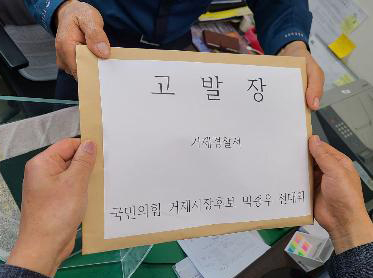 고 발 장
거제경찰서
국민의힘 거제시장후보 박종우 선대위